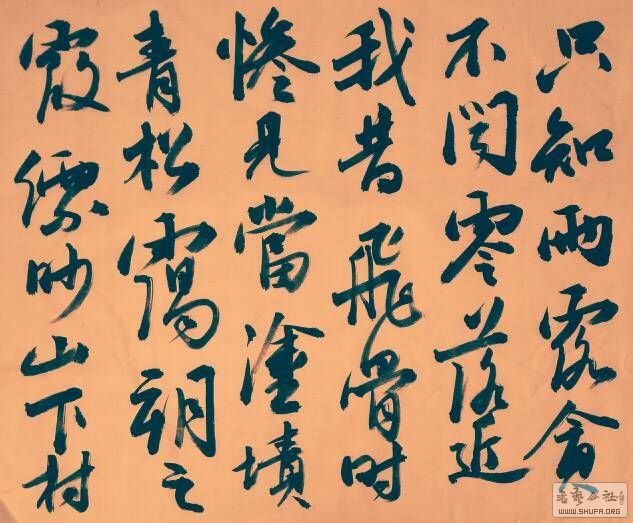 只知雨露貪
不聞零落近
我昔飛骨時
慘見當塗墳
青松靄朝之
霞縹眇山下村
書藝公社
WWW.SHUFA.ORG